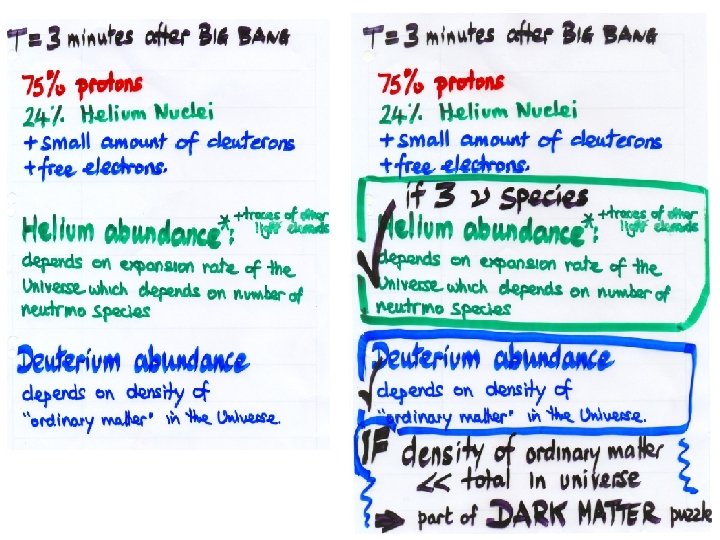 T = 3 minutes after BIG BANG
75% protons
24% Helium Nuclei
+ small amount of deuterons
+ free electrons.
Helium abundance*:
+traces of other
light elements
depends on expansion rate of the
Universe which depends on number of
neutrino species
Deuterium abundance
depends on density of
"ordinary matter" in the Universe.
T = 3 minutes after BIG BANG
75% protons
24% Helium Nuclei
+ small amount of deuterons
+ free electrons.
if 3 ν species
✓
Helium abundance*:
+traces of other
light elements
depends on expansion rate of the
Universe which depends on number of
neutrino species
Deuterium abundance
✓ depends on density of
"ordinary matter" in the Universe.
IF density of ordinary matter
<< total in universe
⇒ part of DARK MATTER puzzle